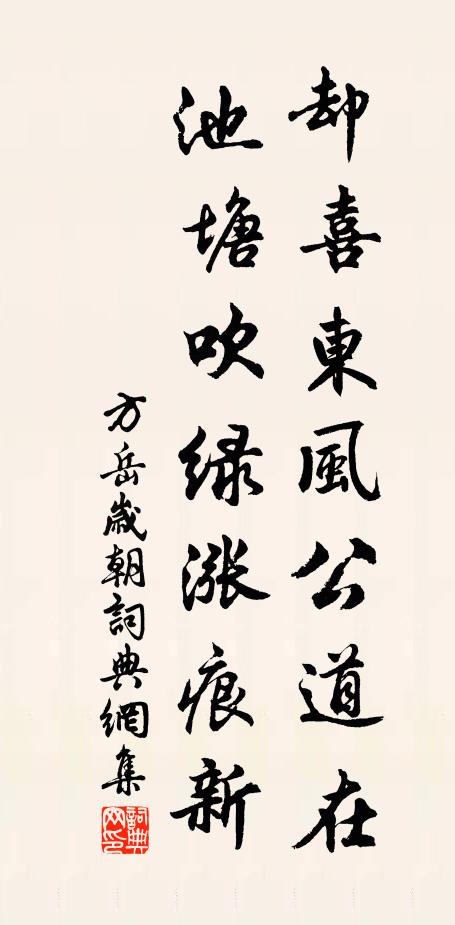 却喜東風公道在
池塘吹緑漲痕新
方岳歲朝詞典網集
詞典网印